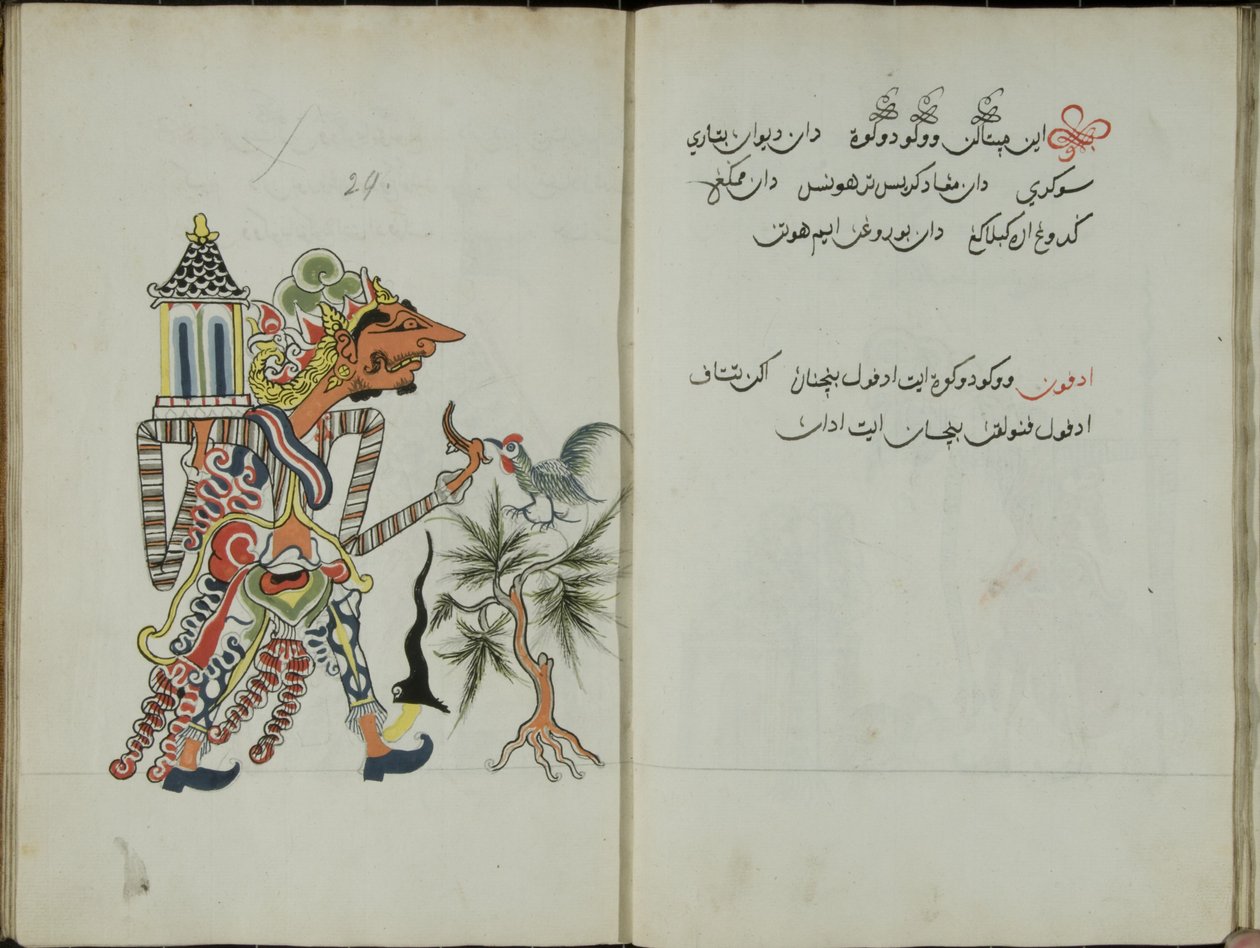 29.
اين مپتاكن ووكو دوكوة دان ديوان بتاري
سوكري دان مڠاد كريس ترهونس دان ممكڠ
كدوڠ اد كبلاكڠ دان بوروڠن ايم هوتن
ادفون ووكو دوكوة ايت ادفول بنچنان اكن تتاف
ادفول فنولقن بنچان ايت ادان